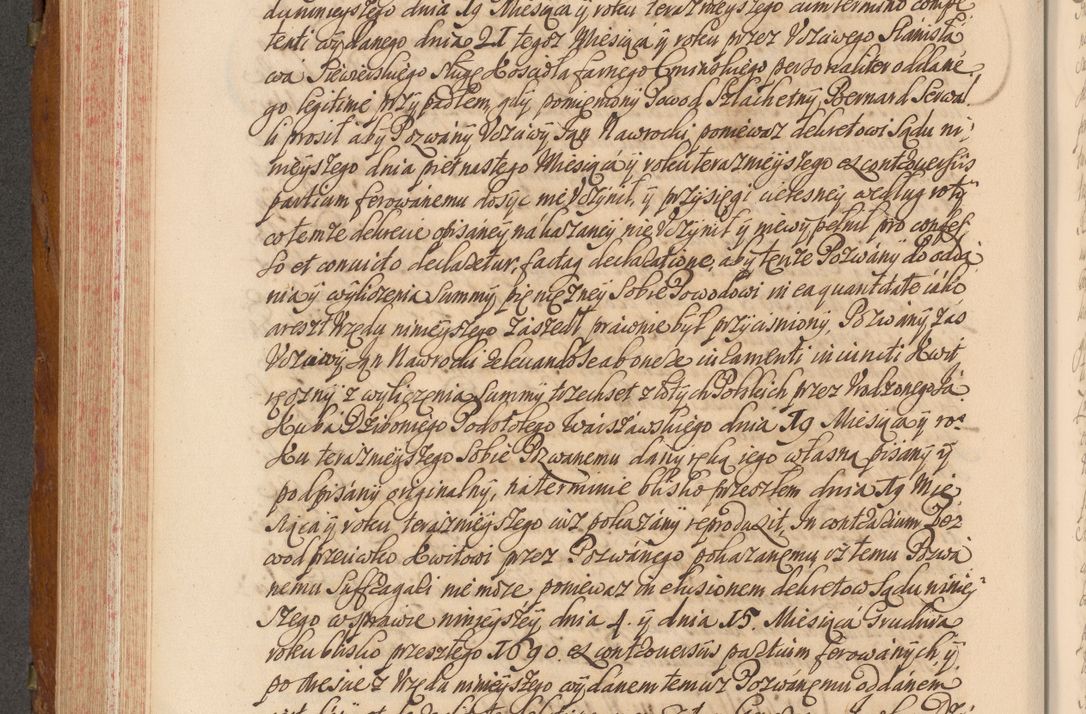 du ninieyszego dnia 19 Miesiąca ÿ roku teraznieyszego cum termino compe
tenti wydanego dnia 21 tegoż Miesiąca ÿ roku przez Uczciwego Stanisła
wa Siewierskiego sługę Kościoła farnego personaliter oddane
go legitime przypadłem, gdy pomieniony Powod Szlachetny Bernard
u prosił aby Pozwany Uczciwy Jan Nawrocki ponieważ dekretowi Sądu ni
nieyszego dnia pietnastego Miesiąca ÿ roku teraznieyszego ex controversiis
partium ferowanemu dosyc nie uczynił, ÿ przysięgi cielesney według roty
co temże dekrecie opisaney nakazaney nie uczynił ÿ niewypełnił pro confes
so et convicto declaretur, factaq declaratione, aby tenże Pozwany do odda
nia ÿ wyliczenia Summy pieniężney Sobie Powodowi in ea quantitate iako
areszt Urzędu ninieyszego zaszedł prawnie był przyciśniony, Pozwany zas
Uczciwy Jan Nawrocki relevando se ab onere iuramenti iniuncti Kwit
ręczny z wyliczenia Summy trzechset złotych Polskich przez Urodzonego Ja
kuba Dziboniego Warszawskiego dnia 19 Miesiąca ÿ ro
ku teraznieyszego Sobie Pozwanemu dany ręką iego własną pisany ÿ
podpisany originalny, na terminie blisko przeszłem dnia 19 Mie
siąca ÿ roku teraznieyszego iuż pokazany reprodu, In contrarium Po
wod przeciwko Kwitowi przez Pozwanego pokazanemu iż temu Pozwa
nemu Suffragari nie może ponieważ in elusionem dekretow Sądu niniey
szego w sprawie ninieyszey dnia 4. ÿ dnia 15. Miesiąca Grudnia
roku blisko przeszłego 1690 ex controversiis partium ferowanych, ÿ
po z Urzędu ninieyszego wydanem temuż Pozwanemu oddanem